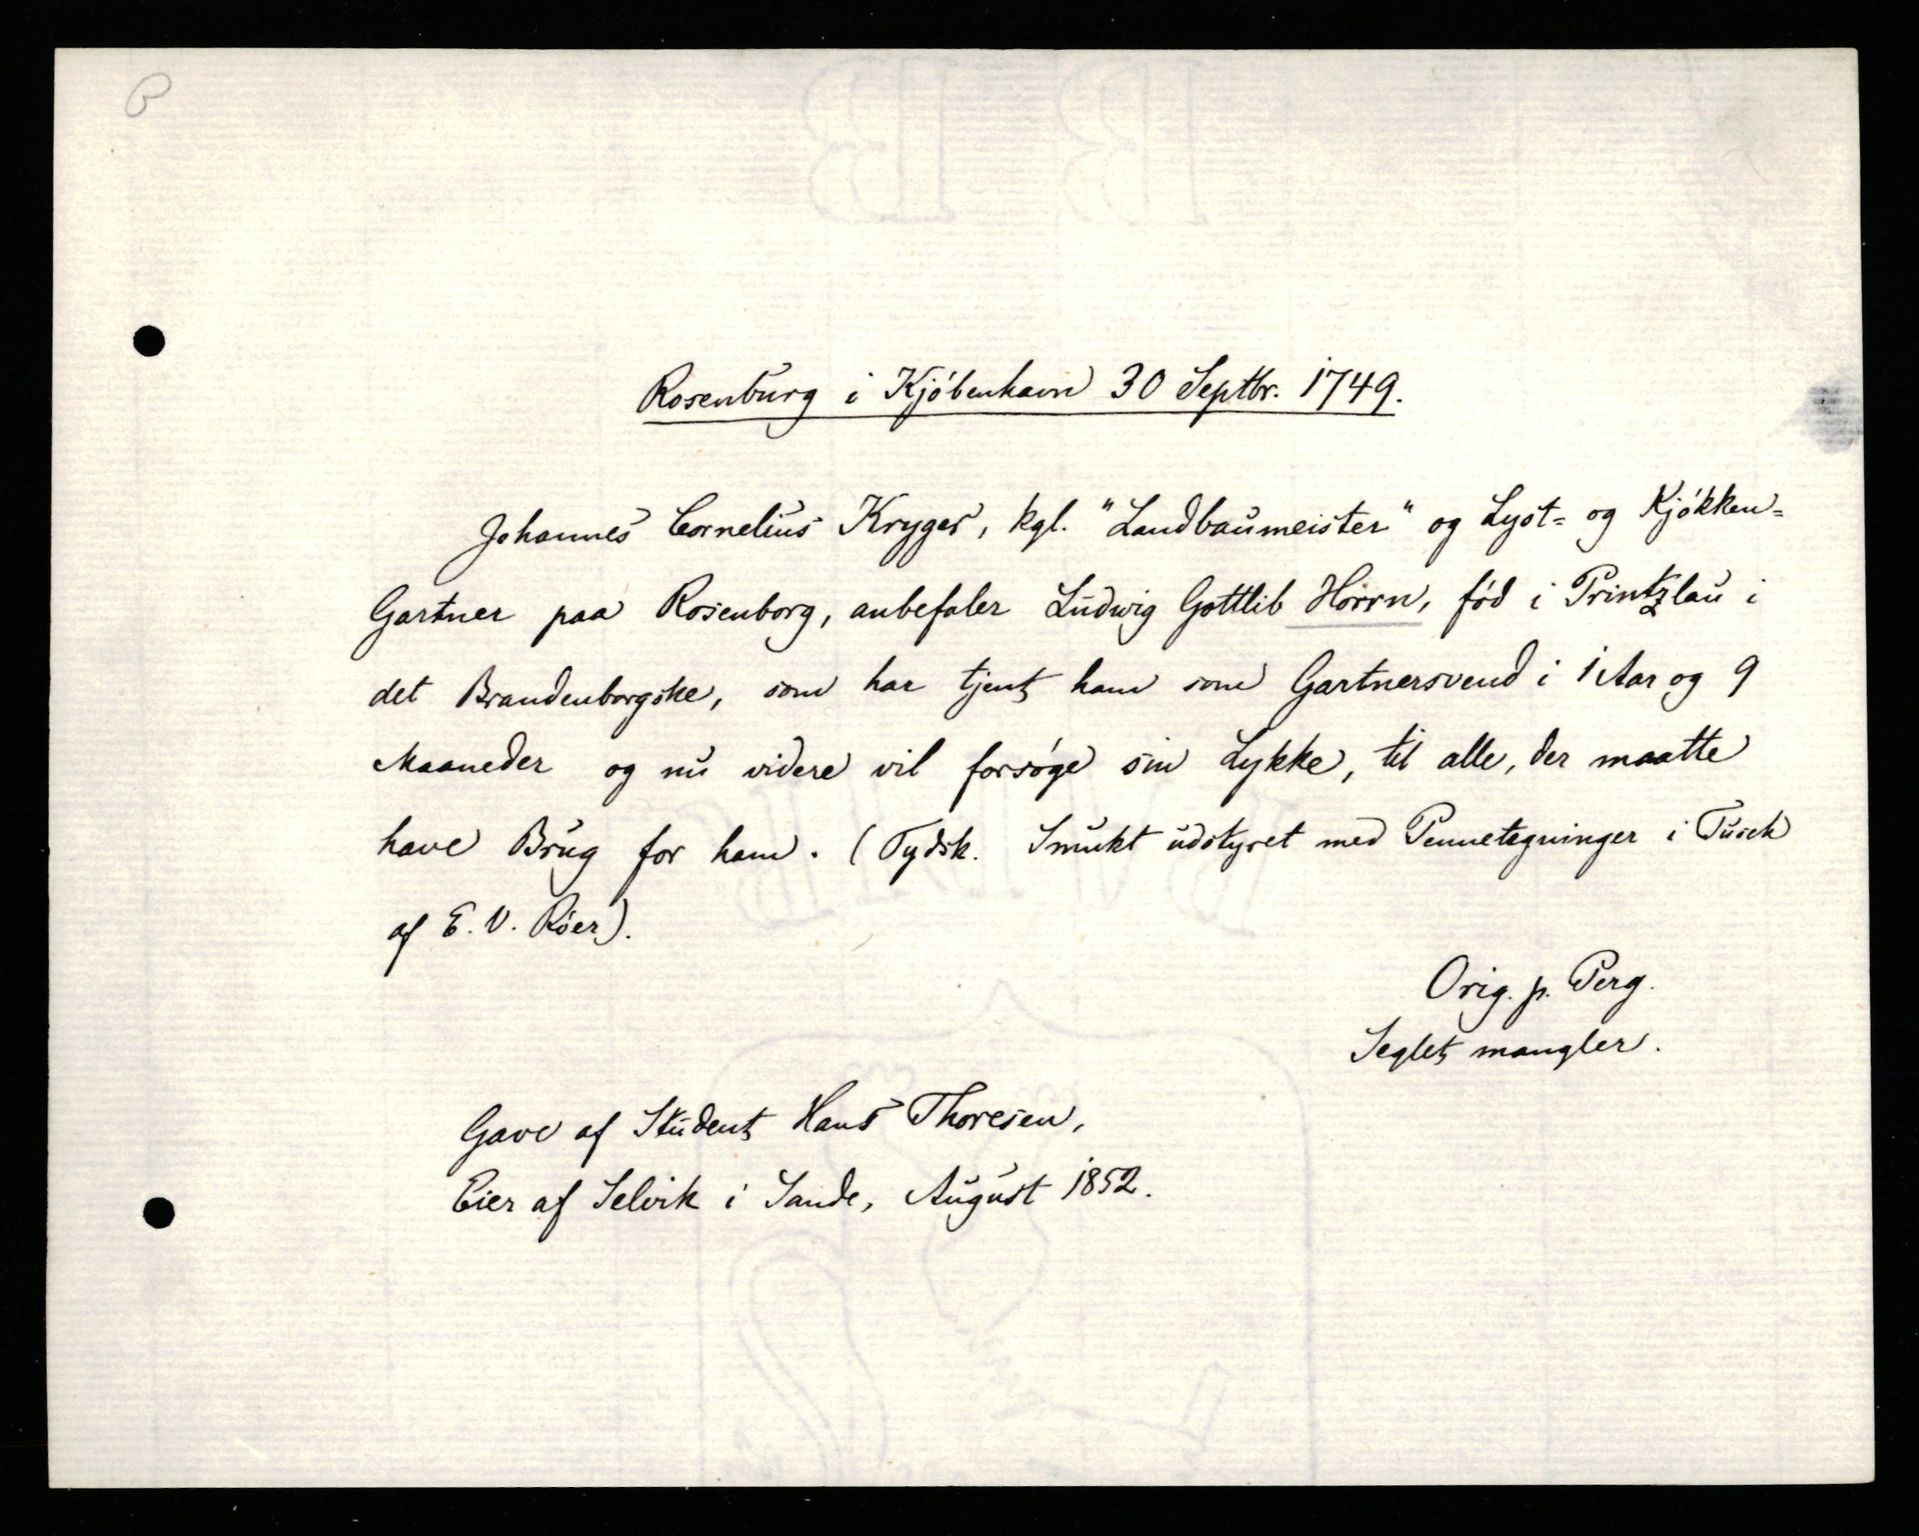 Rosenburg i Kjóbenhavn 30 Septbr. 1749.
Johannes Cornelius Kryger, kgl. "Landbaumeister" og Lyst- og Kjókken-
Gartner paa Rosenborg, anbefaler Ludwig Gottlib Horrn, fód i Printzlau i
det Brandenborgske, som har tjent ham som Gartnersvend i 1 Aar og 9
Maaneder og nu videre vil forsóge sin Lykke, til alle, der maatte
have Brug for ham. (Tydsk. Smukt udstyret med Pennetegninger i Tusch
af E. V. Róer).
Orig. p. Perg.
Seglet mangler.
Gave af Student Hans Thoresen,
Eier af Selvik i Sande, August 1852.